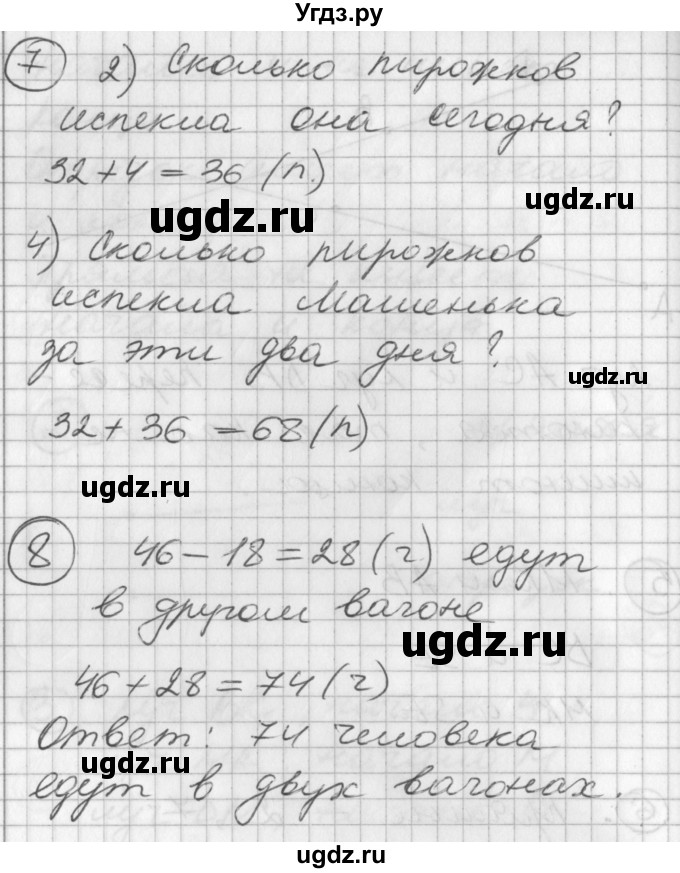 Угдз.ру
7 2) Сколько пирожков
испекла она сегодня?
32+4=36 (п.)
ugdz.ru
ugdz.ru
4) Сколько пирожков
испекла Машенька
за эти два дня?
ugdz.ru
32+36=68(п)
ugdz.ru
8 46-18=28(ч) едут
в другом вагоне
ugdz.ru
46+28=74(ч)
Ответ: 74 человека
ugdz.ru
едут в двух вагонах.
ugdz.ru